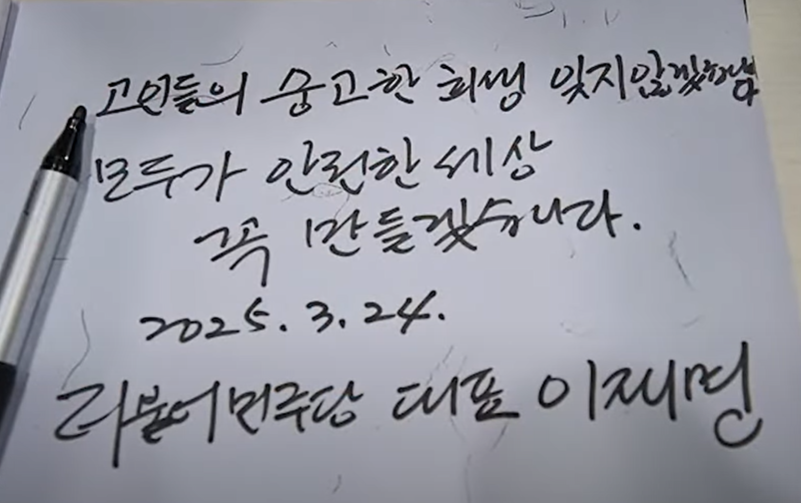 고인들의 숭고한 희생 잊지않겠습니다
모두가 안전한 세상
꼭 만들겠습니다.
2025. 3. 24.
더불어민주당 대표 이재명